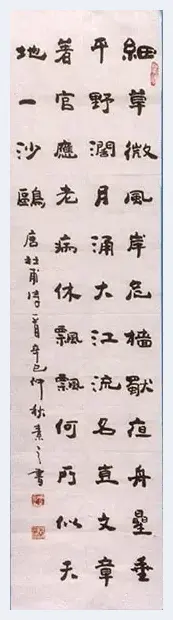 細草微風岸危檣獨夜舟星垂
平野闊月涌大江流名豈文章
著官應老病休飄飄何所似天
地一沙鷗 唐杜甫詩一首辛巳仲秋素之書